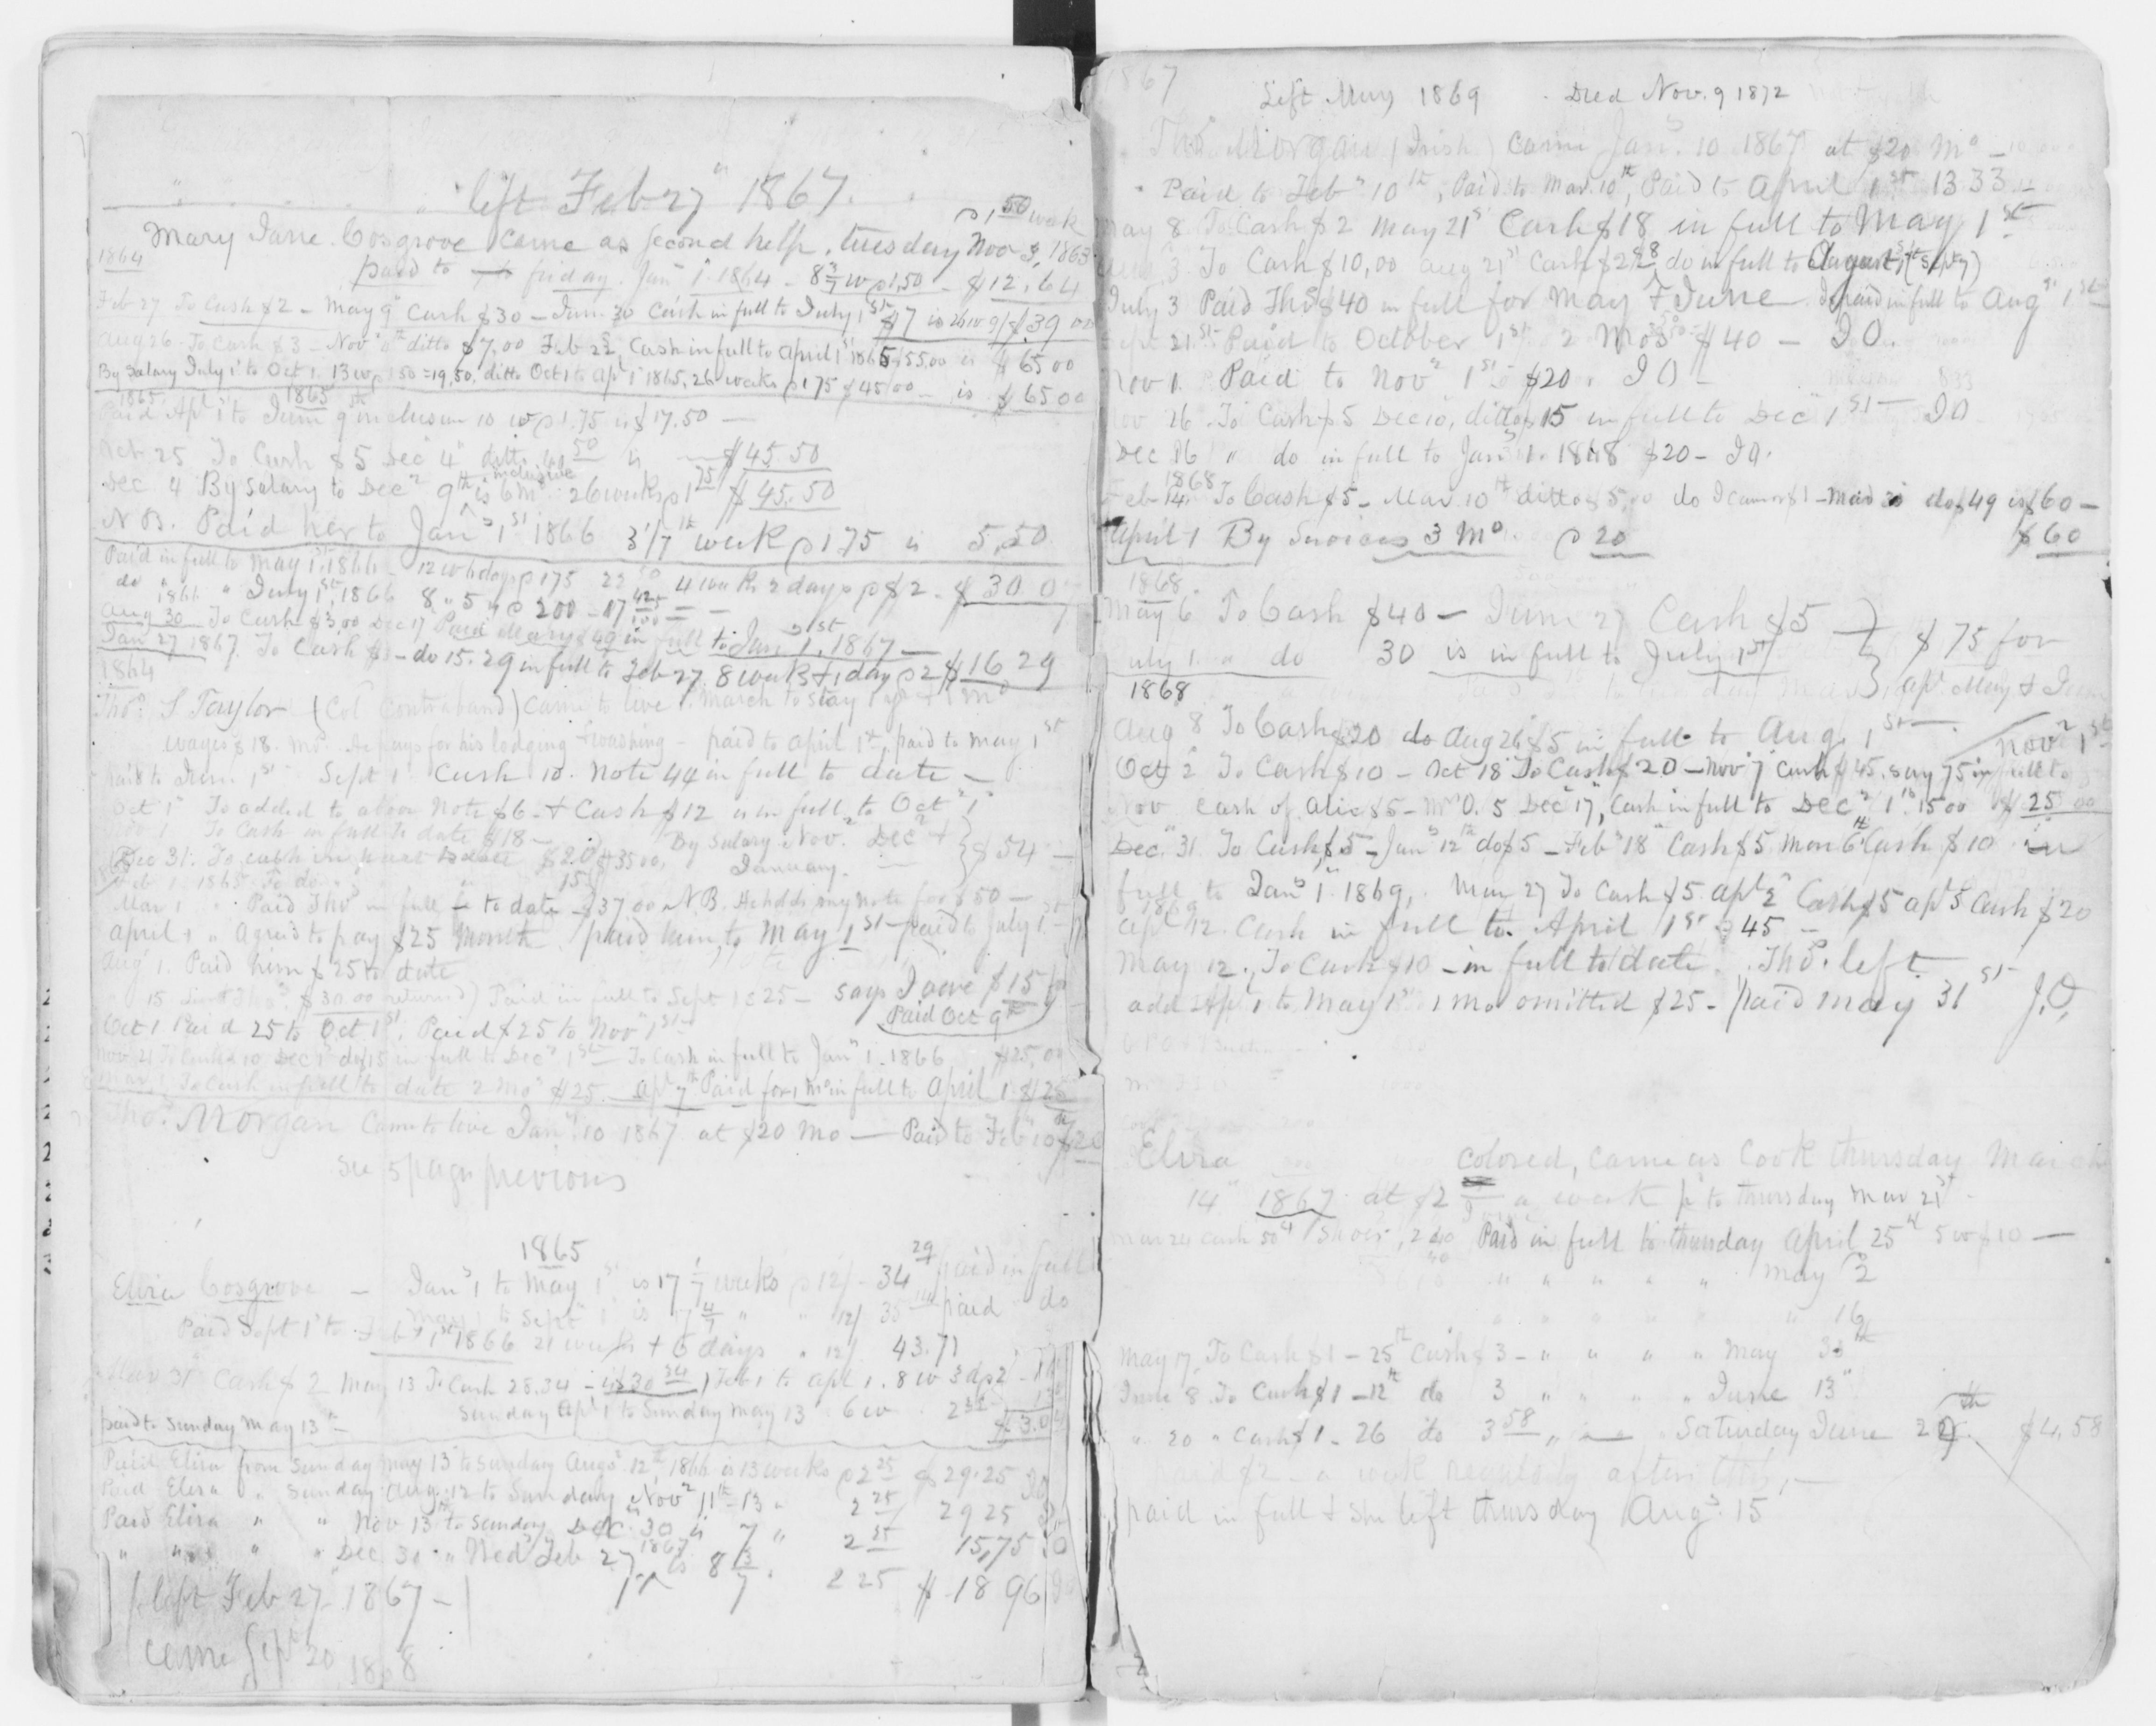 left Feb 27" 1867.
p 1,50 week
Mary Jane Cosgrove came as second help, tuesday Nov 3, 1863
1864
paid to friday. Jan 1. 1864 - 8 3/7 w p 1,50 - $12.64
Feb 27 To Cash $2 - May 9" Cash $30 - Jun 30 Cash in full to July 1st $7 is $39 00
Aug 26. To Cash $3 - Nov ditto $7.00 Feb 22, Cash in full to April 1st 1865 $55.00 is $65 00
By Salary July 1st to Oct 1. 13 w p 1 50 = 19,50. ditto Oct 1 to Apl 1st 1865, 26 weeks p 1 75 $45 00 - is $65 00
1865 1865
Paid Apl 1st to June 9th inclusive 10 w p 1.75 is $17.50 -
Oct 25 To Cash $5 Dec 4" ditto 40 50 is $45 50
Dec 4 By Salary to Decr 9th inclusive is 6 m 26 weeks p 1 75 $45.50
N B. Paid her to Jany 1st 1866 3 1/7th week p 175 is 5,50
Paid in full to May 1st, 1866 - 12 w 6 days p 175 22 50 4 weeks 2 days p $2 - $30 0
do 1866 " July 1st, 1866 8 " 5 " p 200 - 17 42
Aug 30 To Cash $3,00 Dec 17 Paid Mary $49 in full to Jan 1st. 1867 -
Jan 27 1867. To Cash $1 - do 15.29 in full to Feb 27 8 weeks + 1 day p 2 $16 29
1864
Thos S Taylor (Col Contraband) came to live 1 March to stay 1 yr
wages $18. mo. He pays for his lodging + washing - paid to April 1st, paid to may 1st
paid to June 1st Sept 1 Cash 10. Note 44 in full to date -
Oct 1st To added to above Note $6 - + Cash $12 is in full to Oct 1st
Nov 1 To Cash in full to date $18 - By Salary Nov. Decr +
Dec 31. To cash in part to date $20 $35 00, January. - } $54 -
Feb 1. 1865. To do 15
Mar 1 Paid Thos in full - to date - $37.00 N B. He holds my note for $50 -
April 1 " Agreed to pay $25 Month. paid him, to May 1st - paid to July 1st -
Aug 1. Paid him $25 to date
15 Lent Thos. $30.00 returned) Paid in full to Sept 1 $25 - says I owe $15 for
Oct 1 Paid 25 to Oct 1st, Paid $25 to Nov 1st - Paid Oct 9th
Nov 21 To Cash $10 Dec 1st do $15 in full to Decr 1st - To Cash in full to Jany 1. 1866 $25,00
Mar 1 To Cash in full to date 2 mos $25. Apl 7th Paid for 1 Mo in full to April 1. $25
Thos. Morgan Came to live Jany 10 1867 at $20 Mo - Paid to Feby 10 $20
see 5 pages previous
1865
Eliza Cosgrove - Jany 1 to May 1st is 17 1/7 weeks p 12/ - 34 29 paid in full
May 1 to Sept 1 is 17 4/7 " " 12/ 35 14 paid do
Paid Sept 1st to Feb 1st 1866 21 weeks + 6 days " 12/ 43.71
Mar 31 Cash $2 May 13 To Cash 28.34 - is $30 34) Feb 1 to Apl 1. 8 w 3 d p 2
Sunday Apl 1 to Sunday May 13 6 w 2 25
paid to Sunday May 13th
Paid Eliza from Sunday May 13 to Sunday Augst 12, 1866 is 13 weeks p 2 25 $29.25 JO
Paid Eliza " Sunday Aug. 12 to Sunday Novr 11th - 13 " 2 25 29 25
Paid Eliza " " Nov 13th to Sunday Dec. 30 is 7 " 2 25 15,75
" " " " Dec 30 " Wed Feb 27, 1867 is 8 3/7 " 2 25 $18 96
left Feb 27" 1867 -
came Sept 20 1868
1867
Left May 1869 Died Nov. 9 1872
Thos Morgan (Irish) came Jany. 10 1867 at $20 Mo -
Paid to Feby 10th, Paid to Mar. 10th, Paid to April 1st 13 33 -
May 8 To Cash $2 May 21st Cash $18 in full to May 1st
Aug 3 To Cash $10,00 Aug 21st Cash $28 do in full to August 1st (Sept 7)
July 3 Paid Thos $40 in full for May + June. paid in full to Aug 1st
Sept 21st Paid to October 1st 2 Mos $40 - JO.
Nov 1. Paid to Novr 1st $20. JO -
Nov 26. To Cash $5 Dec 10, ditto $15 in full to Decr 1st - JO
Dec 16 " do in full to Jany 1. 1868 $20 - JO.
1868
Feb 14. To Cash $5 - Mar. 10th ditto $5,00 do $1 - do $49 is $60 -
April 1 By Services 3 Mo. p 20 $60
1868
May 6 To Cash $40 - June 27 Cash $5
July 1. " do 30 is in full to July 1st } $75 for
Apl. May + June
1868
Aug 8 To Cash $20 do Aug 26 $5 in full to Aug. 1st -
Novr 1st
Oct 2 To Cash $10 - Oct 18 To Cash $20 - Nov 7 Cash $45. say 75 in full to
Nov Cash of Alice $5 - Mrs O. 5 Decr 17", Cash in full to Decr 1st. 15 00 $25 00
Dec. 31 To Cash $5 - Jany 12th do $5 - Feby 18" Cash $5 Mar 6th Cash $10 in
full to Jany 1. 1869, Mar 27 To Cash $5 apl 2d Cash $5 apl 5 Cash $20
1869
Apl 12. Cash in full to. April 1st $45 -
May 12., To Cash $10 - in full to date. Thos. left
add Apl 1 to May 1st 1 mo omitted $25 - paid May 31st J.O.
Eliza colored, came as Cook thursday March
14" 1867 at $2 a week pd to thursday Mar 21st
Mar 24 Cash 50 shoes, 2 00 Paid in full to thursday April 25th 5 w $10 -
" " " " " May 2
" " " " " " 16
May 17, To Cash $1 - 25th Cash $3 - " " " " May 30th
June 8 To Cash $1 - 12th do 3 " " " " June 13"
" 20 " Cash $1 - 26 do 3 58 " " " Saturday June 29th. $4,58
paid $2 - a week regularly after this, -
paid in full + she left thursday Aug. 15